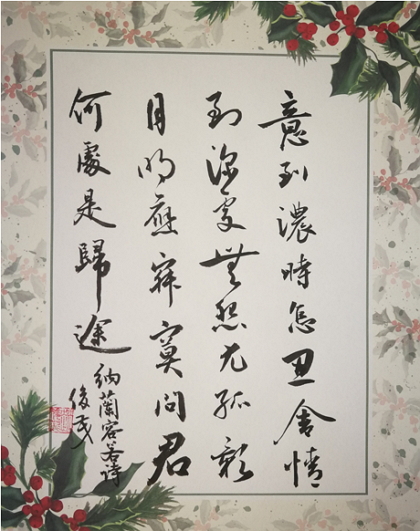 意到濃時怎忍舍情
到深處無怨尤孤影
月明應寂寞問君
何處是歸途
納蘭容若詩
俊